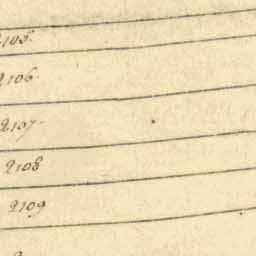 2105.
2106.
2107.
2108
2109